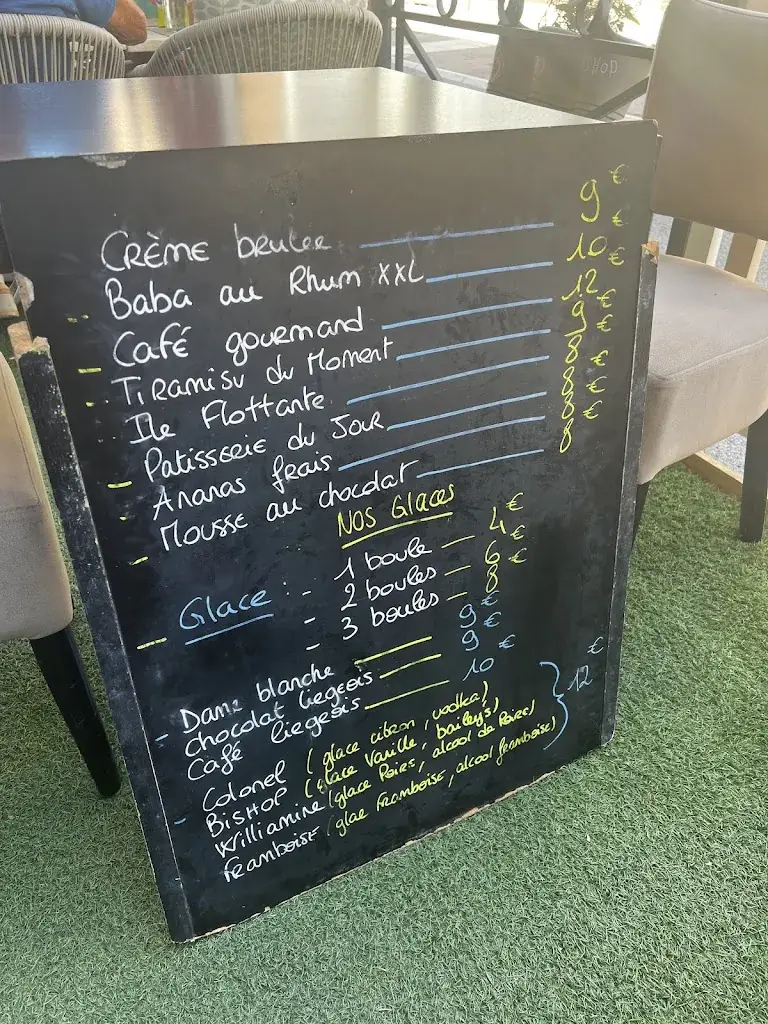 CRÈME brulee 9 €
Baba au Rhum XXL 10 €
Café gourmand 12 €
TIRAMISU du Moment 9 €
Ile Flottante 8 €
Patisserie du Jour 8 €
Ananas frais 8 €
Mousse au chocolat 8 €
NOS GLACES
Glace : - 1 boule - 4 €
- 2 boules - 6 €
- 3 boules - 8 €
- Dame blanche 9 €
chocolat liegeois 9 €
Café liegeois 10 €
- Colonel (glace citron, vodka)
BISHOP (glace Vanille, bailey's) 12 €
Williamine (glace Poire, alcool de Poires)
framboise (glae Framboise, alcool framboise)